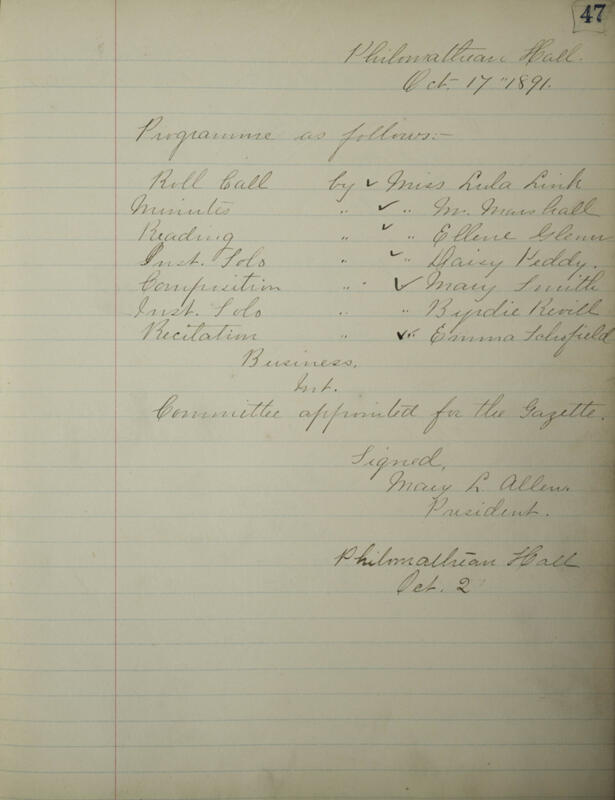 47
Philomathean Hall.
Oct. 17" 1891.
Programme as follows:-
Roll Call by ✓ Miss Lula Link
Minutes " ✓ " Mr. Marshall
Reading " ✓ " Ellene Glenn
Inst. Solo " ✓ " Daisy Peddy.
Composition " " ✓ Mary Smith
Inst. Solo " " Byrdie Revill
Recitation " ✓ " Emma Schofield
Business.
Int.
Committee appointed for the Gazette.
Signed,
Mary L. Allen.
President.
Philomathean Hall
Oct. 2